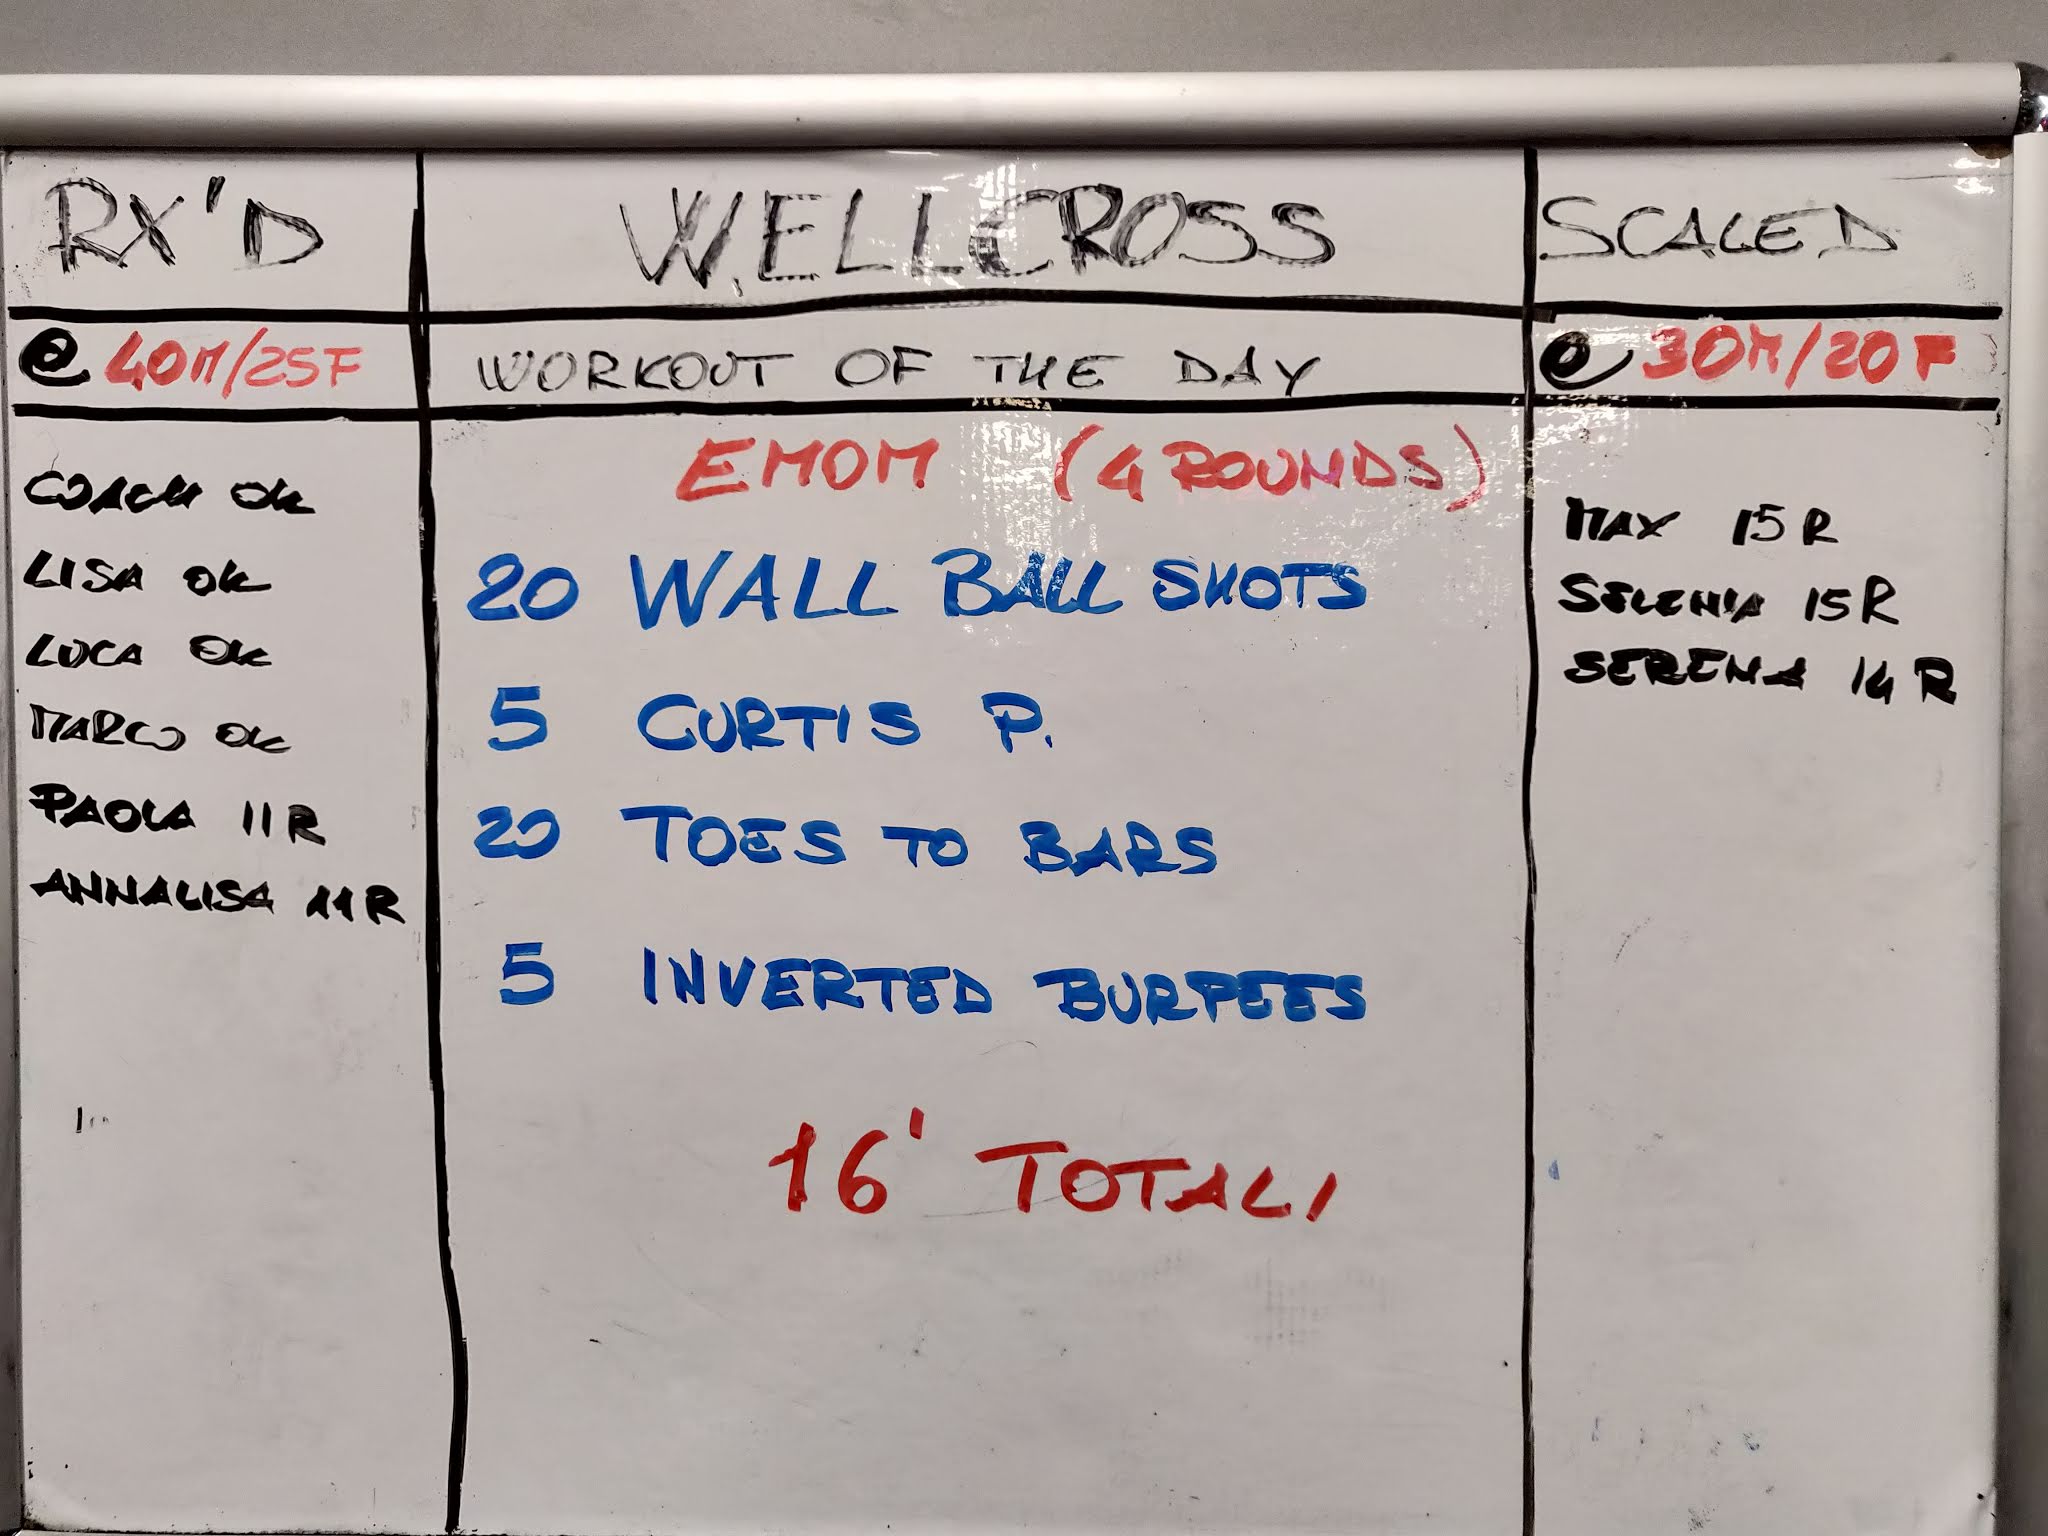 RX'D
@ 40M/25F
COACH OK
LISA OK
LUCA OK
MARCO OK
PAOLA 11R
ANNALISA 11R
WELLCROSS
WORKOUT OF THE DAY
EMOM (4 ROUNDS)
20 WALL BALL SHOTS
5 CURTIS P.
20 TOES TO BARS
5 INVERTED BURPEES
16' TOTALI
SCALED
@ 30M/20F
MAX 15R
SELENIA 15R
SERENA 14R